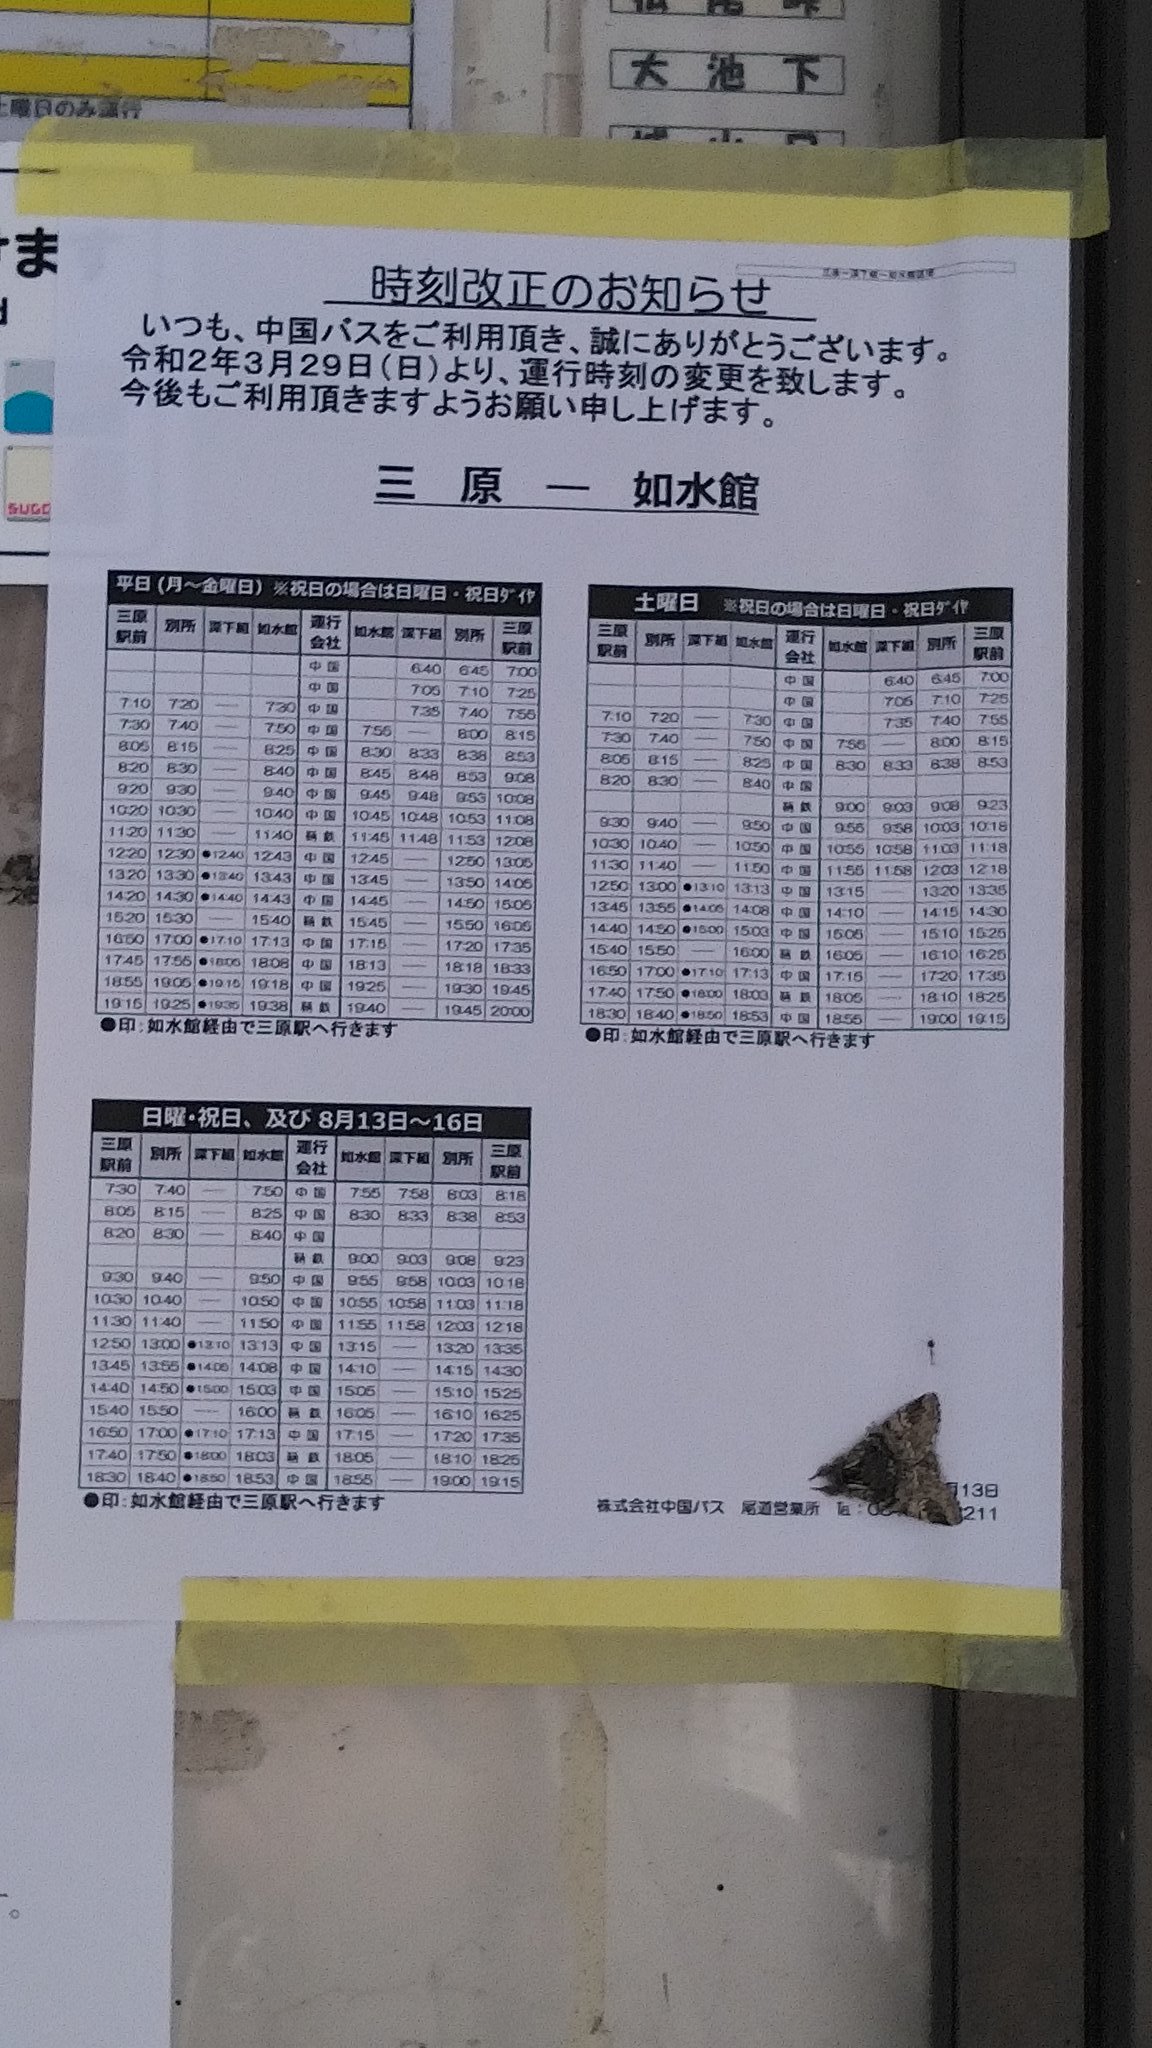 大池下
土曜日のみ運行
けま
SUGO
時刻改正のお知らせ
いつも、中国バスをご利用頂き、誠にありがとうございます。
令和2年3月29日(日)より、運行時刻の変更を致します。
今後もご利用頂きますようお願い申し上げます。
三 原 ー 如水館
平日(月～金曜日) ※祝日の場合は日曜日・祝日ダイヤ
三原駅前 別所 深下組 如水館 運行会社 如水館 深下組 別所 三原駅前
中国 6:40 6:45 7:00
中国 7:05 7:10 7:25
7:10 7:20 ― 7:30 中国 7:35 7:40 7:55
7:30 7:40 ― 7:50 中国 7:55 ― 8:00 8:15
8:05 8:15 ― 8:25 中国 8:30 8:33 8:38 8:53
8:20 8:30 ― 8:40 中国 8:45 8:48 8:53 9:08
9:20 9:30 ― 9:40 中国 9:45 9:48 9:53 10:08
10:20 10:30 ― 10:40 中国 10:45 10:48 10:53 11:08
11:20 11:30 ― 11:40 鞆鉄 11:45 11:48 11:53 12:08
12:20 12:30 ●12:40 12:43 中国 12:45 ― 12:50 13:05
13:20 13:30 ●13:40 13:43 中国 13:45 ― 13:50 14:05
14:20 14:30 ●14:40 14:43 中国 14:45 ― 14:50 15:05
15:20 15:30 ― 15:40 鞆鉄 15:45 ― 15:50 16:05
16:50 17:00 ●17:10 17:13 中国 17:15 ― 17:20 17:35
17:45 17:55 ●18:05 18:08 中国 18:13 ― 18:18 18:33
18:55 19:05 ●19:15 19:18 中国 19:25 ― 19:30 19:45
19:15 19:25 ●19:35 19:38 鞆鉄 19:40 ― 19:45 20:00
●印：如水館経由で三原駅へ行きます
土曜日 ※祝日の場合は日曜日・祝日ダイヤ
三原駅前 別所 深下組 如水館 運行会社 如水館 深下組 別所 三原駅前
中国 6:40 6:45 7:00
中国 7:05 7:10 7:25
7:10 7:20 ― 7:30 中国 7:35 7:40 7:55
7:30 7:40 ― 7:50 中国 7:55 ― 8:00 8:15
8:05 8:15 ― 8:25 中国 8:30 8:33 8:38 8:53
8:20 8:30 ― 8:40 中国
鞆鉄 9:00 9:03 9:08 9:23
9:30 9:40 ― 9:50 中国 9:55 9:58 10:03 10:18
10:30 10:40 ― 10:50 中国 10:55 10:58 11:03 11:18
11:30 11:40 ― 11:50 中国 11:55 11:58 12:03 12:18
12:50 13:00 ●13:10 13:13 中国 13:15 ― 13:20 13:35
13:45 13:55 ●14:05 14:08 中国 14:10 ― 14:15 14:30
14:40 14:50 ●15:00 15:03 中国 15:05 ― 15:10 15:25
15:40 15:50 ― 16:00 鞆鉄 16:05 ― 16:10 16:25
16:50 17:00 ●17:10 17:13 中国 17:15 ― 17:20 17:35
17:40 17:50 ●18:00 18:03 鞆鉄 18:05 ― 18:10 18:25
18:30 18:40 ●18:50 18:53 中国 18:55 ― 19:00 19:15
●印：如水館経由で三原駅へ行きます
日曜・祝日、及び 8月13日～16日
三原駅前 別所 深下組 如水館 運行会社 如水館 深下組 別所 三原駅前
7:30 7:40 ― 7:50 中国 7:55 7:58 8:03 8:18
8:05 8:15 ― 8:25 中国 8:30 8:33 8:38 8:53
8:20 8:30 ― 8:40 中国
鞆鉄 9:00 9:03 9:08 9:23
9:30 9:40 ― 9:50 中国 9:55 9:58 10:03 10:18
10:30 10:40 ― 10:50 中国 10:55 10:58 11:03 11:18
11:30 11:40 ― 11:50 中国 11:55 11:58 12:03 12:18
12:50 13:00 ●13:10 13:13 中国 13:15 ― 13:20 13:35
13:45 13:55 ●14:05 14:08 中国 14:10 ― 14:15 14:30
14:40 14:50 ●15:00 15:03 中国 15:05 ― 15:10 15:25
15:40 15:50 ― 16:00 鞆鉄 16:05 ― 16:10 16:25
16:50 17:00 ●17:10 17:13 中国 17:15 ― 17:20 17:35
17:40 17:50 ●18:00 18:03 鞆鉄 18:05 ― 18:10 18:25
18:30 18:40 ●18:50 18:53 中国 18:55 ― 19:00 19:15
●印：如水館経由で三原駅へ行きます
月13日
株式会社中国バス 尾道営業所 ℡：0 211